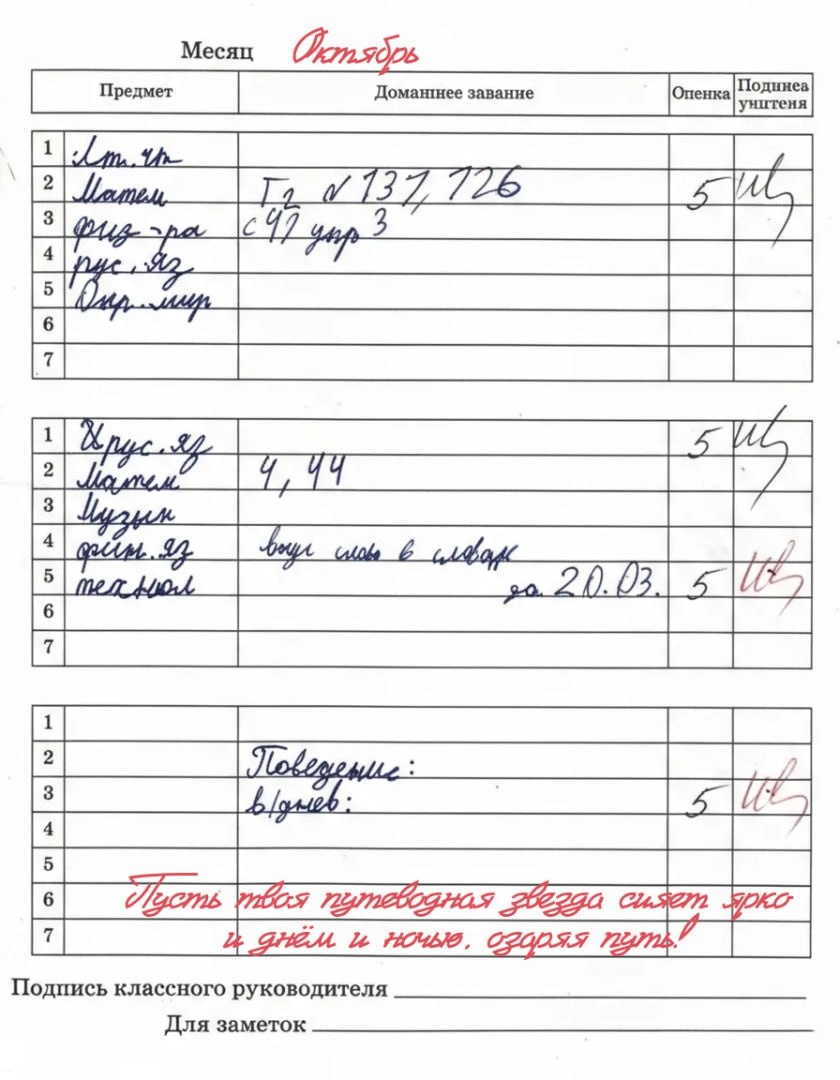 Месяц Октябрь
Предмет Домашнее завание Опенка Подписа
унштеня
1 Лт. чт
2 Матем Тг № 137, 126 5
3 физ-ра с 41 упр 3
4 рус. яз
5 Окр. мир
6
7
1 рус. яз 5
2 Матем 4, 44
3 Музык
4 яз в словаре
5 технол до 20.03. 5
6
7
1
2 Поведение:
3 в/днев: 5
4
5
6 Пусть твоя путеводная звезда сияет ярко
7 и днём и ночью, озаряя путь!
Подпись классного руководителя
Для заметок